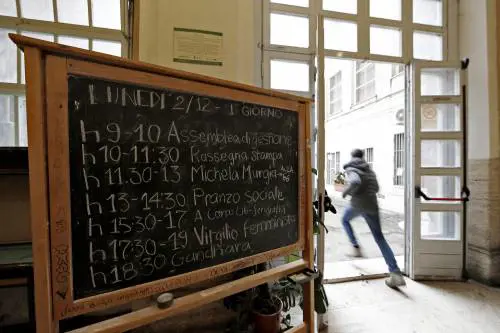 LUNEDÌ 2/12 - 1° GIORNO
h 9-10 Assemblea di gestione
h 10-11:30 Rassegna stampa
h 11.30-13 Michela Murgia
h 13-14:30 Pranzo sociale
h 15.30-17 A Corpo
h 17.30-19 Virgilio femminista
h 18:30 Gandhara